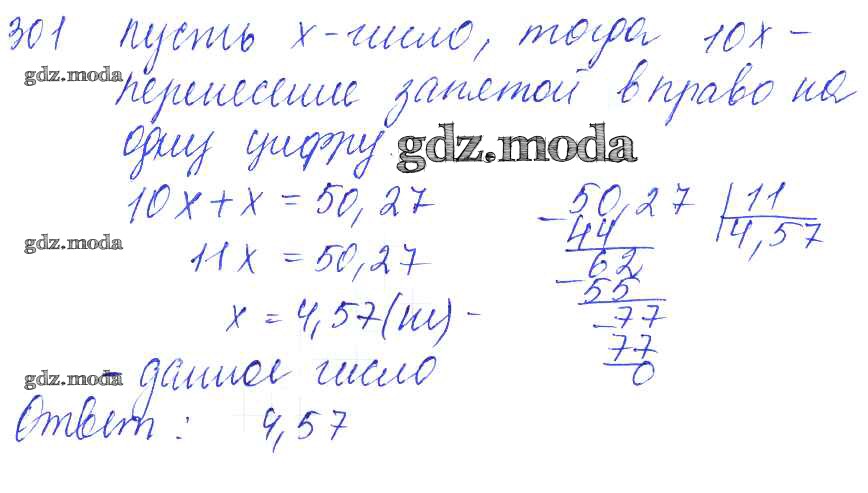 301 Пусть x - число, тогда 10x -
gdz.moda
перенесение запятой вправо на
одну цифру. gdz.moda
10x + x = 50,27
gdz.moda
11x = 50,27
x = 4,57 -
gdz.moda
- данное число
Ответ: 4,57
50,27 | 11
- 44 4,57
62
- 55
77
- 77
0